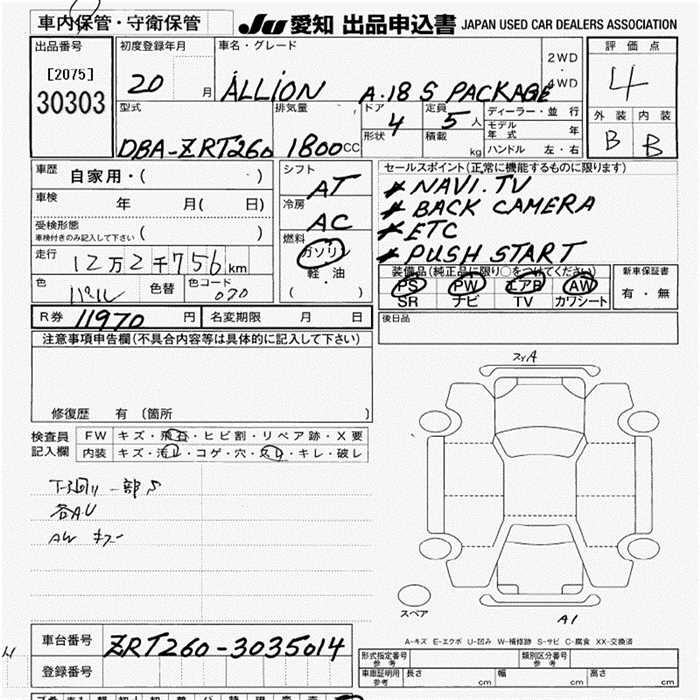 車内保管・守衛保管
JU 愛知 出品申込書 JAPAN USED CAR DEALERS ASSOCIATION
出品番号
[2075]
30303
初度登録年月
20 月
車名・グレード
ALLION A.18 S PACKAGE
2WD
4WD
評価点
4
外装 内装
B B
型式
DBA-ZRT260
排気量
1800cc
ドア
4
形状
定員
5人
積載
kg
ディーラー・並行
モデル年式 年
ハンドル 左・右
車歴
自家用・( )
車検
年 月( 日)
受検形態
車検付きのみ記入して下さい ( )
走行
12万2千756km
色
パール
色替
色コード
070
シフト
AT
冷房
AC
燃料
ガソリン
・
軽油
( )
セールスポイント(正常に機能するものに限ります)
* NAVI.TV
* BACK CAMERA
* ETC
* PUSH START
装備品(純正品に限り○をつけてください)
PS PW エアB AW
SR ナビ TV カワシート
新車保証書
有・無
R券 11970円
名変期限 月 日
後日品
注意事項申告欄(不具合内容等は具体的に記入して下さい)
修復歴 有 (箇所 )
検査員
記入欄
FW キズ・飛石・ヒビ割・リペア跡・X要
内装 キズ・汚レ・コゲ・穴・スレ・キレ・破レ
下廻り一部S
各AU
AW キズ
A
スペア
A1
A-キズ E-エクボ U-凹み W-補修跡 S-サビ C-腐食 XX-交換済
車台番号
ZRT260-3035014
登録番号
形式指定番号
参考
類別区分番号
参考
車庫証明用
参考
長さ cm
幅 cm
高さ cm